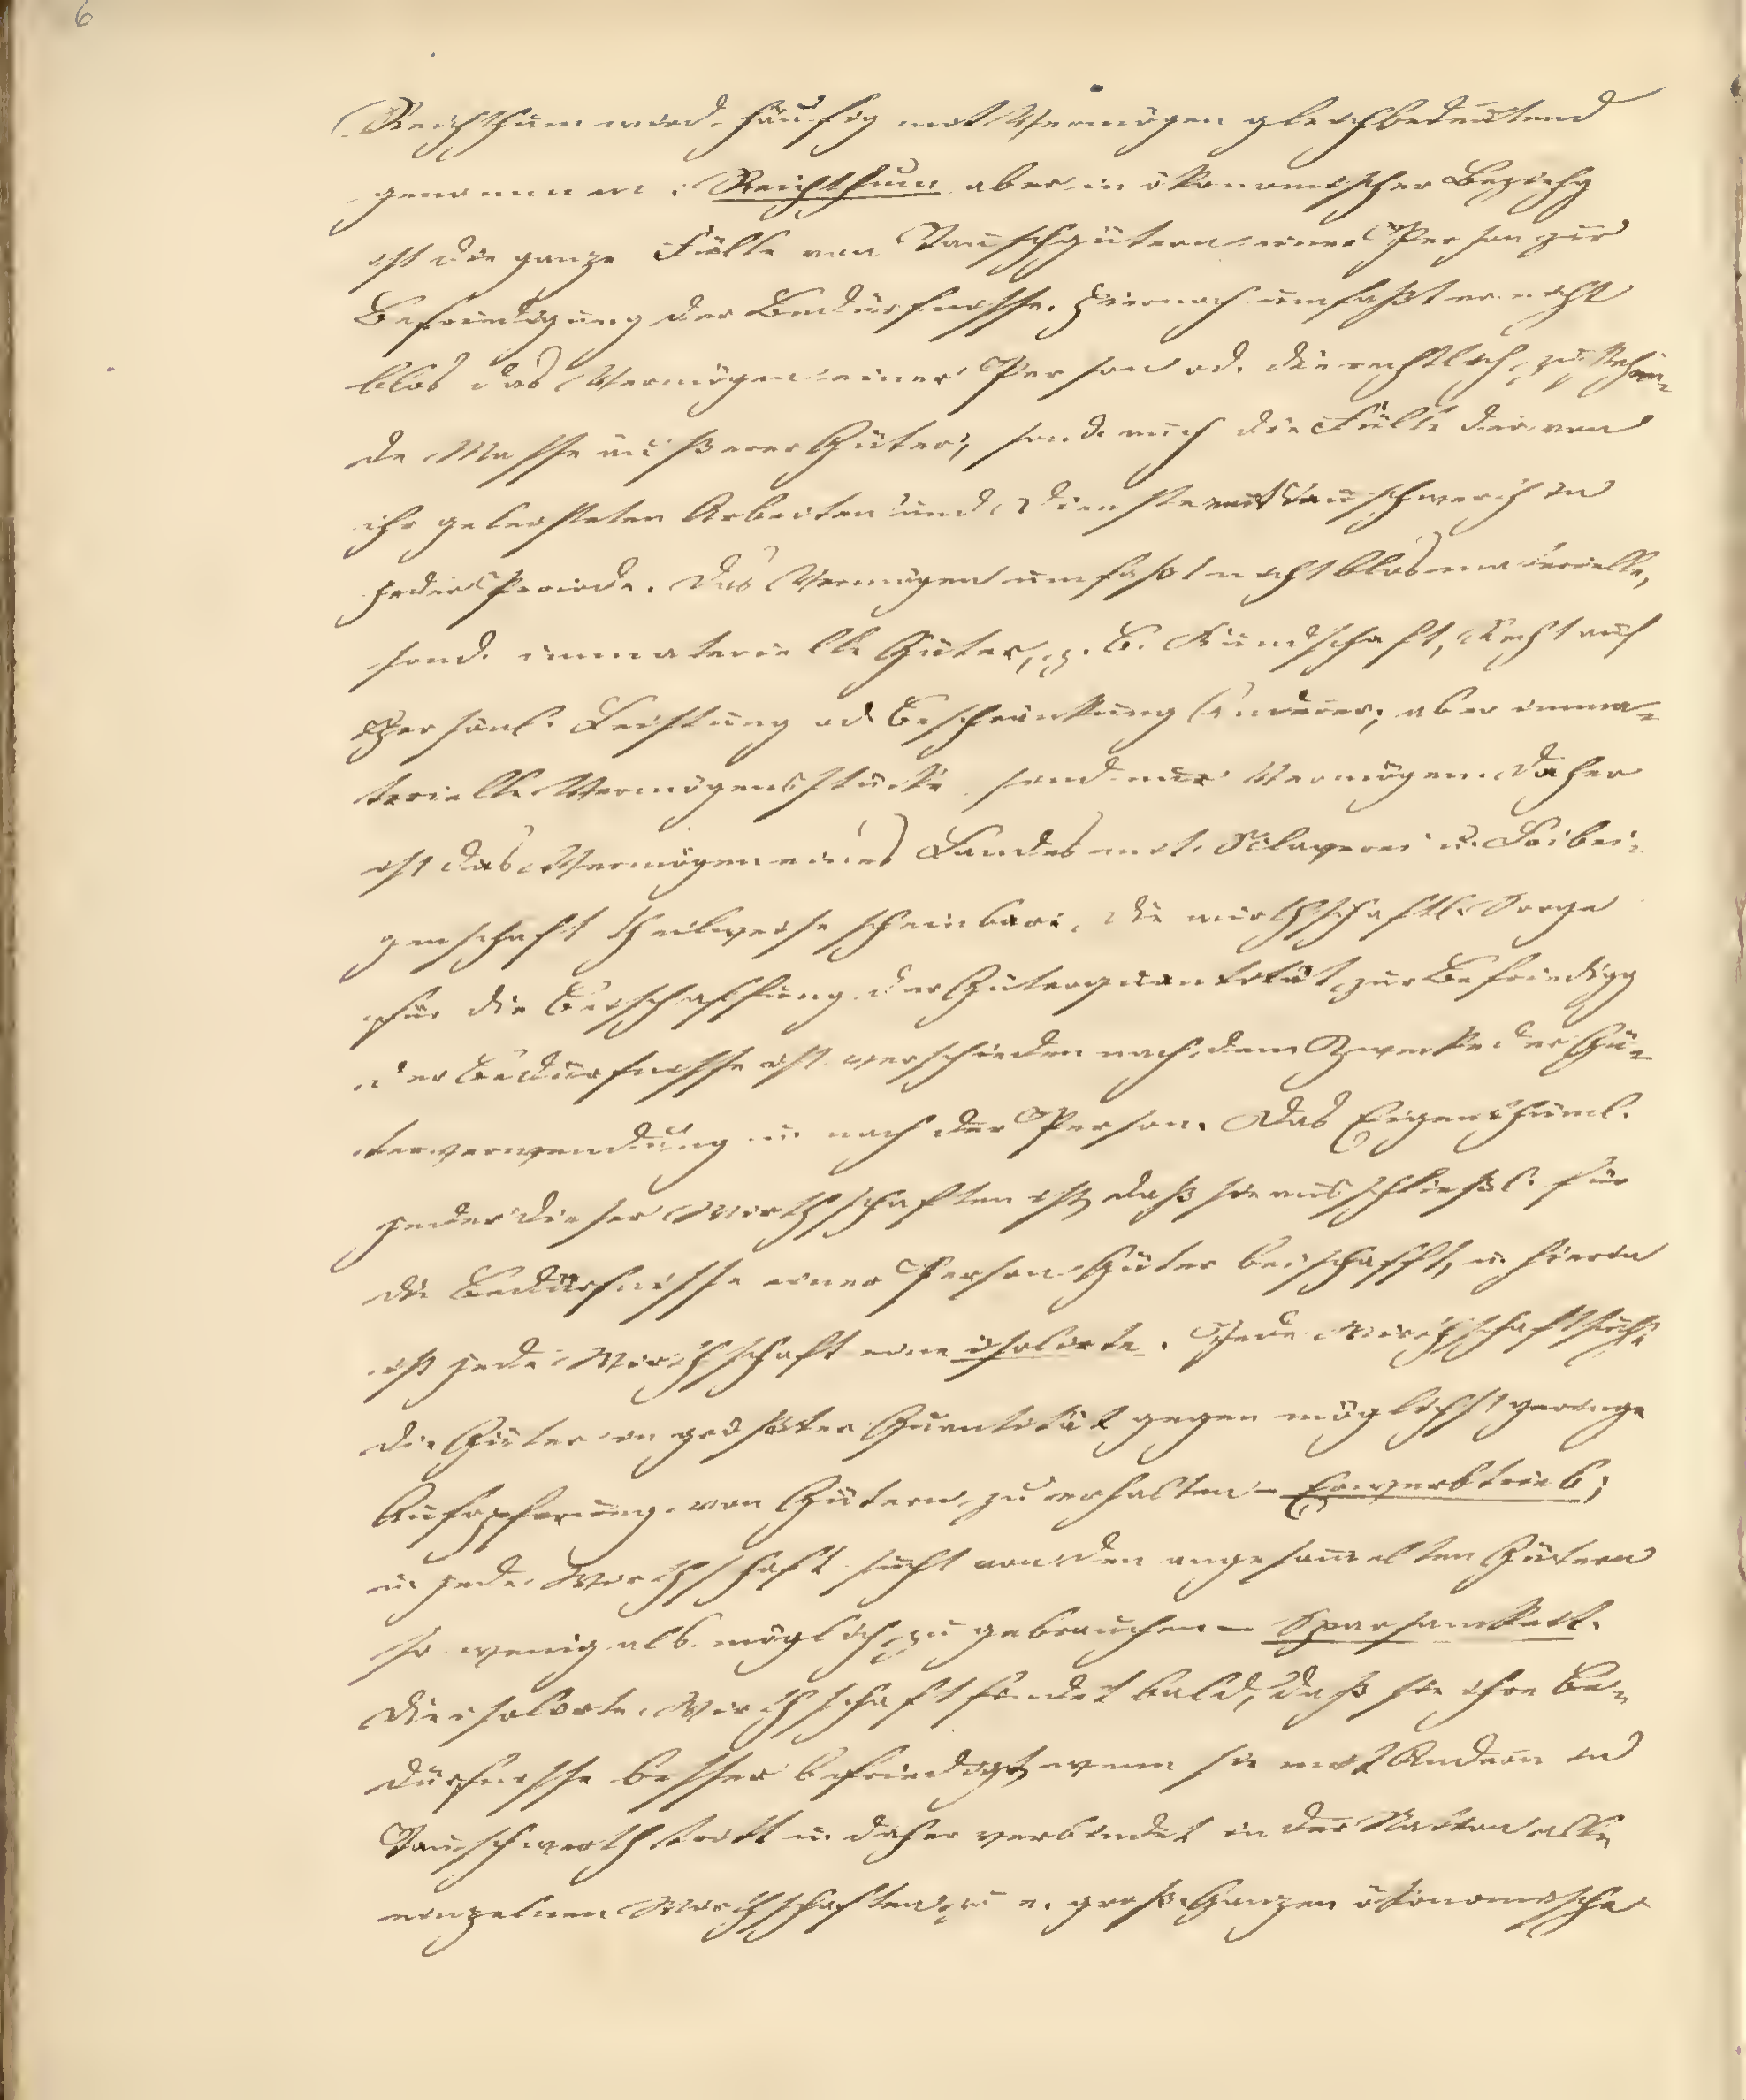 6
Reichthum wird häufig mit Vermögen gleichbedeutend
genommen; Reichthum aber in ökonomischer Beziehg
ist die ganze Fülle von Tauschgütern einer Person zur
Befriedigung der Bedürfnisse. Hiernach umfaßt er nicht
blos das Vermögen einer Person od. die rechtlich zustehen-
de Masse äußerer Güter, sond. auch die Fülle der von
ihr geleisteten Arbeiten und Dienste mit Tauschwerth in
jeder Periode. Das Vermögen umfaßt nicht blos materielle,
sond. immaterielle Güter, z. B. Kundschaft, Recht auf
Persönl. Leistung od Beschränkung Anderer; aber imma-
terielle Vermögensstücke sind nur Vermögen. Daher
ist das Vermögen eines Landes mit Sclaverei u. Leibei-
genschaft theilweise scheinbar. Die wirthschaftl. Sorge
für die Beischaffung der Güterquantität zur Befriedigg
der Bedürfnisse ist verschieden nach dem Zwecke der Gü-
terverwendung u. nach der Person. Das Eigenthüml.
jeder dieser Wirthschaften ist, daß sie ausschließl. für
die Bedürfnisse einer Person Güter beischafft, u. hierin
ist jede Wirthschaft eine isolirte. Jede Wirthschaft sucht
die Güter in größter Quantität gegen möglichst geringe
Aufopferung von Gütern zu erhalten – Erwerbtrieb;
u. jede Wirthschaft sucht von den angesammelten Gütern
so wenig als möglich zu gebrauchen – Sparsamkeit.
Die isolirte Wirthschaft findet bald, daß sie ihre Be-
dürfnisse besser befriedigt, wenn sie mit Andern in
Tauschwerth tritt u. daher verbindet in der Nation alle
einzelnen Wirthschaften zu e. groß. Ganzen ökonomische